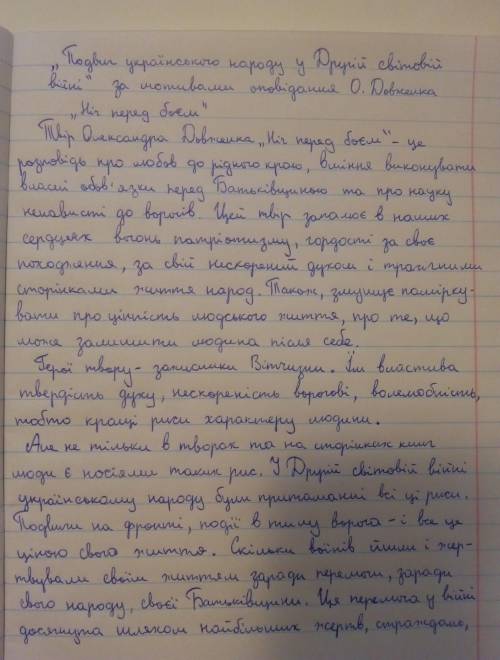 „Подвиг українського народу у Другій світовій
війні" за мотивами оповідання О. Довженка
„Ніч перед боєм"
Твір Олександра Довженка „Ніч перед боєм" - це
розповідь про любов до рідного краю, вміння виконувати
власні обов'язки перед Батьківщиною та про науку
ненависті до ворогів. Цей твір запалює в наших
серцях вогонь патріотизму, гордості за своє
походження, за свій нескорений духом і трагічними
сторінками життя народ. Також, змушує поміркувати
вати про цінність людського життя, про те, що
може залишити людина після себе.
Герої твору - захисники Вітчизни. Їм властива
твердість духу, нескореність ворогові, волелюбність,
тобто кращі риси характеру людини.
Але не тільки в творах та на сторінках книг
люди є носіями таких рис. У Другій світовій війні
українському народу були притаманні всі ці риси.
Подвиги на фронті, події в тилу ворога - і все це
ціною свого життя. Скільки воїнів йшли і жер-
твували своїм життям заради перемоги, заради
свого народу, своєї Батьківщини. Ця перемога у війні
досягнута шляхом найбільших жертв, страждань,